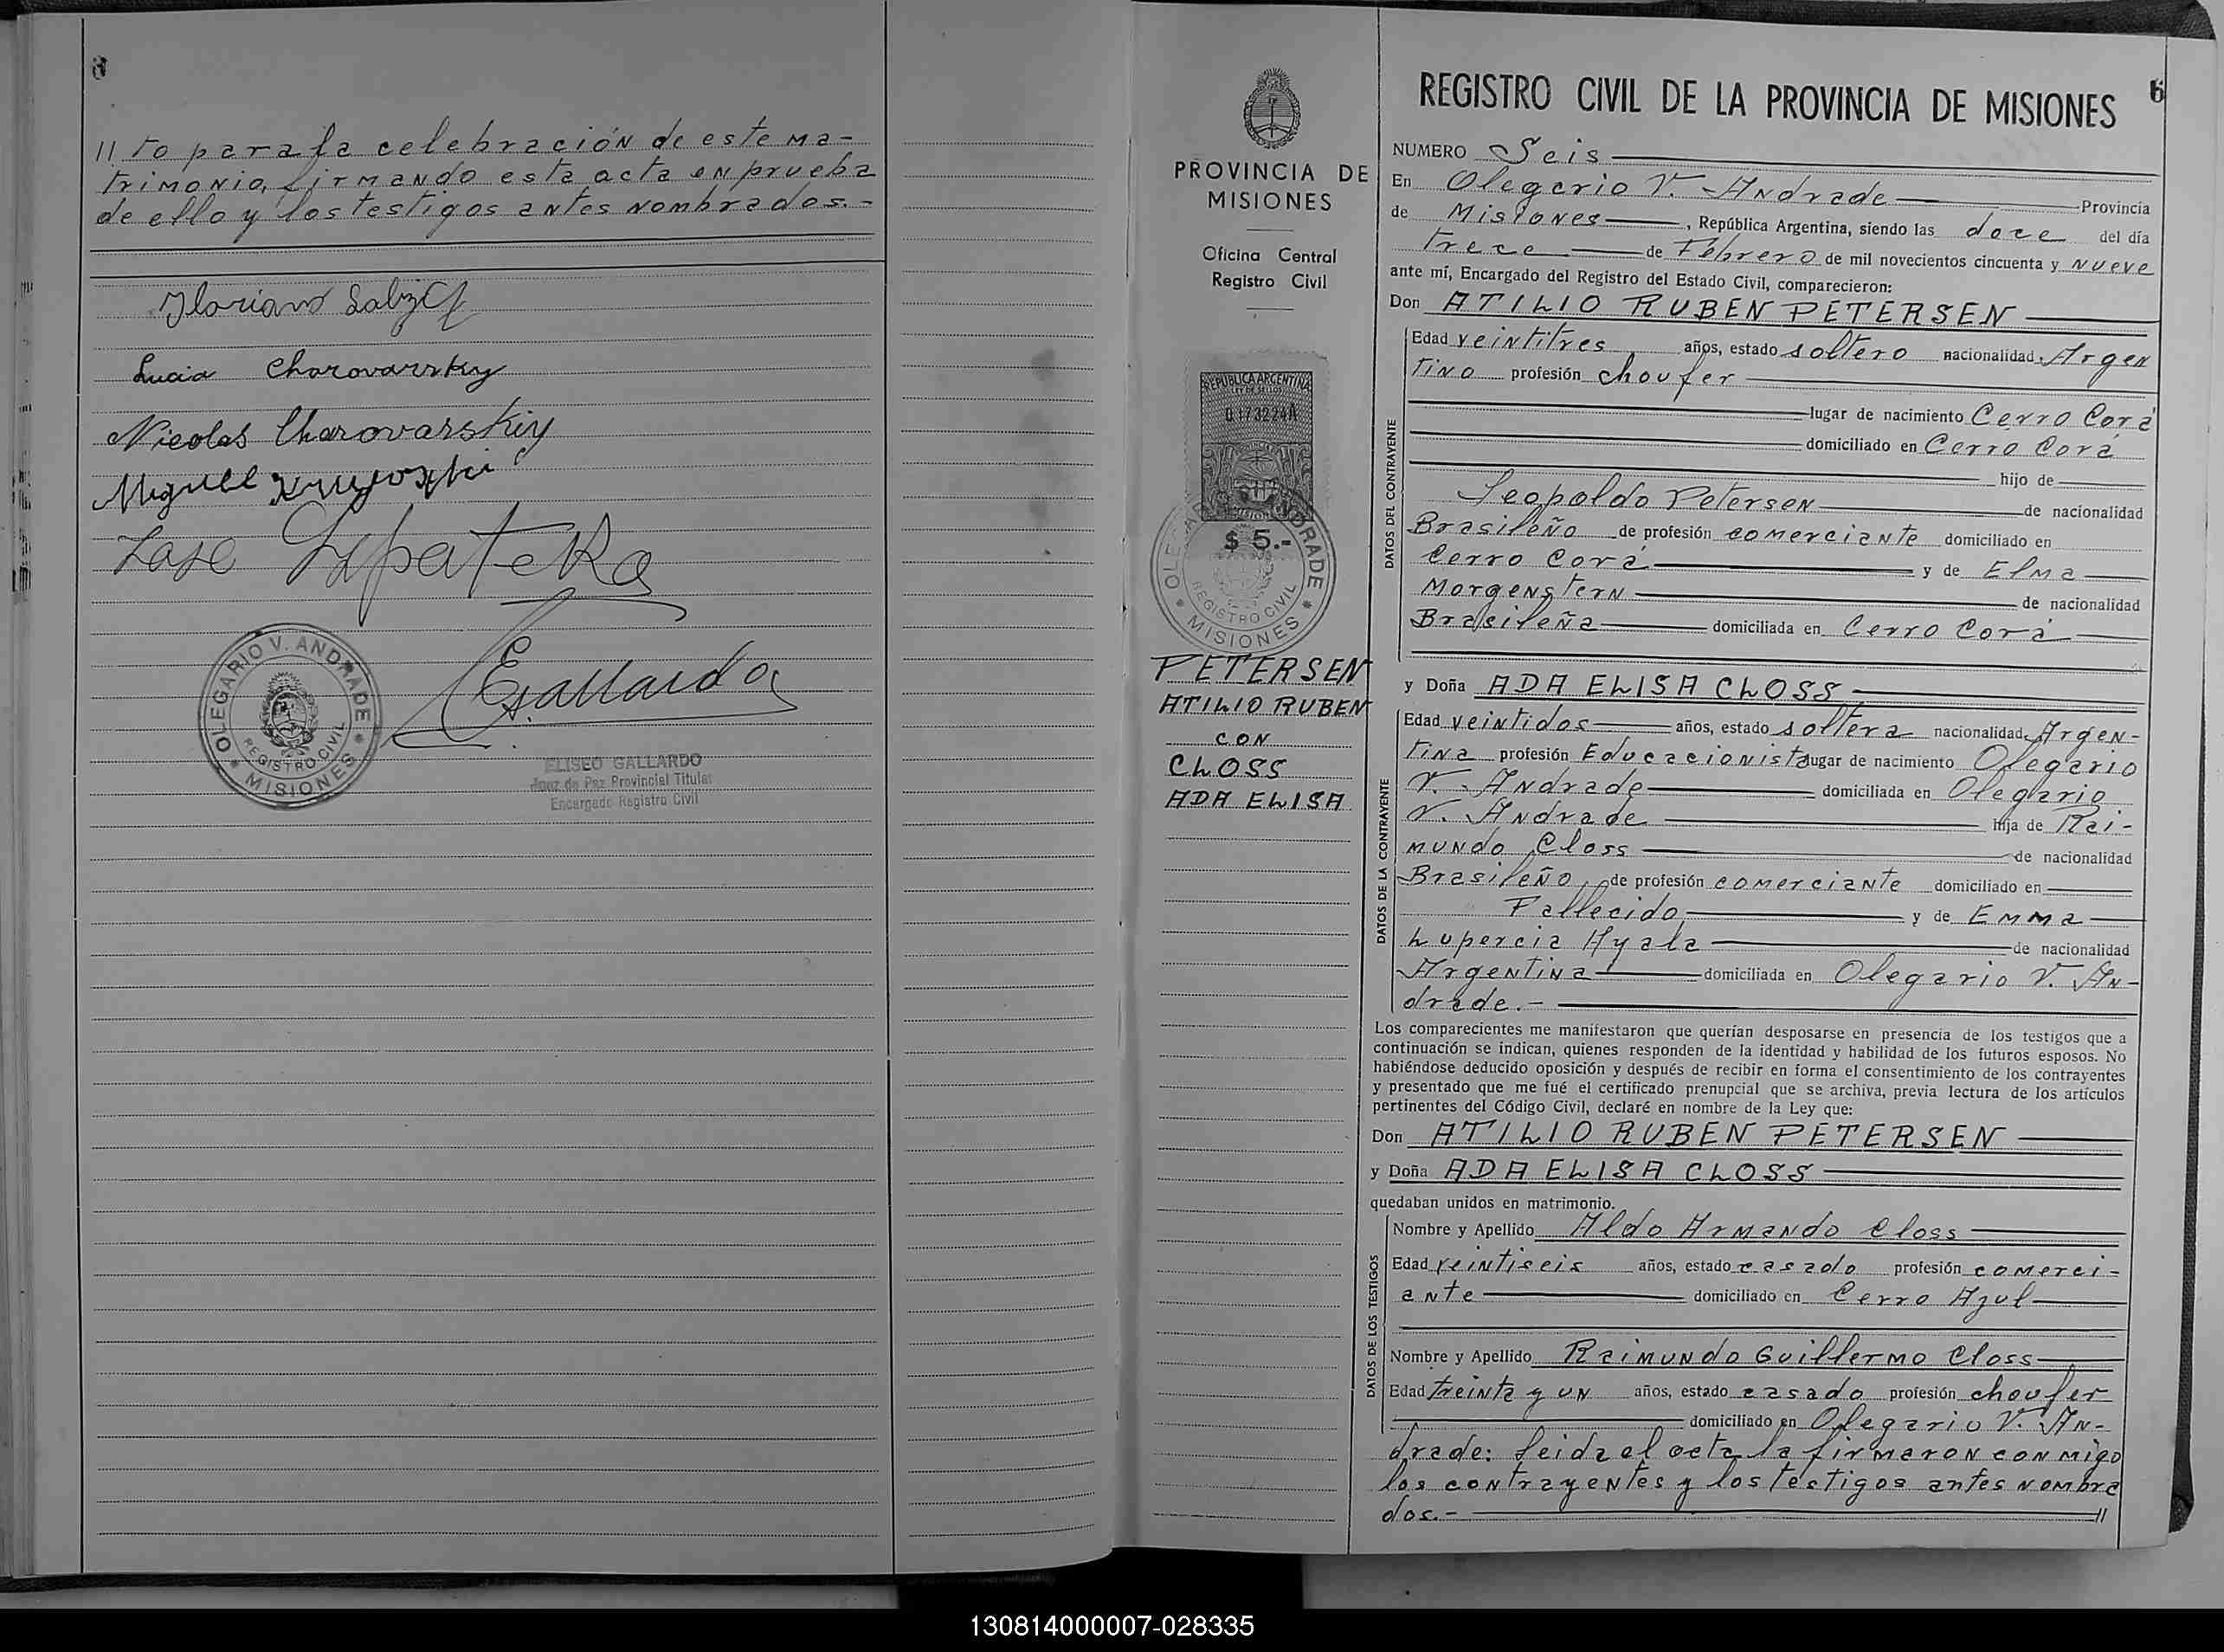 // to para la celebración de este ma-
trimonio, firmando esta acta en prueba
de ello y los testigos antes nombrados.-
Lucia Charovarskiy
Nicolas Charovarskiy
Miguel
Jose
E. Gallardo
OLEGARIO V. ANDRADE
REGISTRO CIVIL
* MISIONES *
ELISEO GALLARDO
Juez de Paz Provincial Titular
Encargado Registro Civil
PROVINCIA DE
MISIONES
Oficina Central
Registro Civil
REPUBLICA ARGENTINA
LEY DE SELLOS
$ 5.-
REGISTRO CIVIL
* MISIONES *
PETERSEN
ATILIO RUBEN
CON
CLOSS
ADA ELISA
6
REGISTRO CIVIL DE LA PROVINCIA DE MISIONES
NUMERO Seis
En Olegario V. Andrade Provincia
de Misiones, República Argentina, siendo las doce del día
trece de Febrero de mil novecientos cincuenta y nueve
ante mí, Encargado del Registro del Estado Civil, comparecieron:
Don ATILIO RUBEN PETERSEN
DATOS DEL CONTRAYENTE
Edad veintitres años, estado soltero nacionalidad Argen
tino profesión choufer
lugar de nacimiento Cerro Corá
domiciliado en Cerro Corá
hijo de
Leopoldo Petersen de nacionalidad
Brasileño de profesión comerciante domiciliado en
Cerro Corá y de Elma
Morgenstern de nacionalidad
Brasileña domiciliada en Cerro Corá
y Doña ADA ELISA CLOSS
DATOS DE LA CONTRAYENTE
Edad veintidos años, estado soltera nacionalidad Argen-
tina profesión Educacionista lugar de nacimiento Olegario
V. Andrade domiciliada en Olegario
V. Andrade hija de Rai-
mundo Closs de nacionalidad
Brasileño de profesión comerciante domiciliado en
Fallecido y de Emma
Lupercia Ayala de nacionalidad
Argentina domiciliada en Olegario V. An-
drade.-
Los comparecientes me manifestaron que querían desposarse en presencia de los testigos que a
continuación se indican, quienes responden de la identidad y habilidad de los futuros esposos. No
habiéndose deducido oposición y después de recibir en forma el consentimiento de los contrayentes
y presentado que me fué el certificado prenupcial que se archiva, previa lectura de los artículos
pertinentes del Código Civil, declaré en nombre de la Ley que:
Don ATILIO RUBEN PETERSEN
y Doña ADA ELISA CLOSS
quedaban unidos en matrimonio.
DATOS DE LOS TESTIGOS
Nombre y Apellido Aldo Armando Closs
Edad veintiseis años, estado casado profesión comerci-
ante domiciliado en Cerro Azul
Nombre y Apellido Raimundo Guillermo Closs
Edad treinta y un años, estado casado profesión choufer
domiciliado en Olegario V. An-
drade: leida el acta la firmaron conmigo
los contrayentes y los testigos antes nombra
dos.- //
130814000007-028335